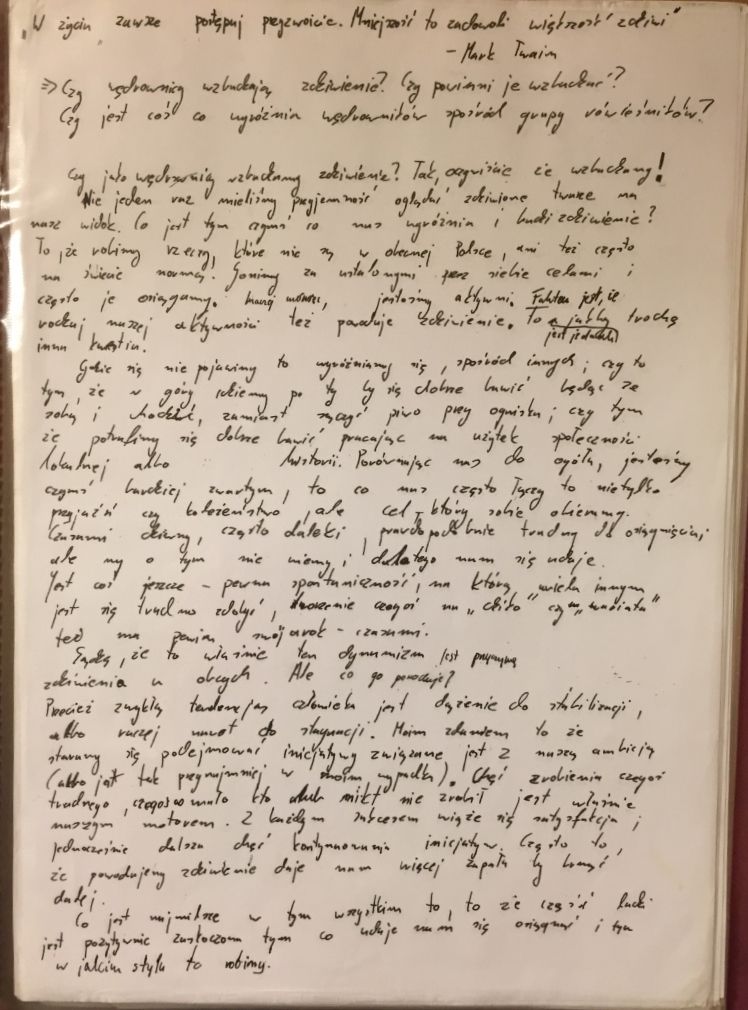 "W życiu zawsze postępuj przyzwoicie. Mniejszość to zadowoli większość zdziwi"
– Mark Twain
=> Czy wędrownicy wzbudzają zdziwienie? Czy powinni je wzbudzać?
Czy jest coś co wyróżnia wędrowników spośród grupy rówieśników?
Czy jako wędrownicy wzbudzamy zdziwienie? Tak, oczywiście że wzbudzamy!
Nie jeden raz mieliśmy przyjemność oglądać zdziwione twarze na
nasz widok. Co jest tym czymś co nas wyróżnia i budzi zdziwienie?
To, że robimy rzeczy, które nie są w obecnej Polsce, ani też często
na świecie normą. Gonimy za ustalonymi przez siebie celami i
często je osiągamy. Inaczej mówiąc, jesteśmy aktywni. Faktem jest, że
rodzaj naszej aktywności też powoduje zdziwienie. To jest jednakże trochę
inna kwestia.
Gdzie się nie pojawimy to wyróżniamy się, spośród innych; czy to
tym, że w góry idziemy po ty by się dobrze bawić będąc ze
sobą i chodzić, zamiast sączyć piwo przy ognisku; czy tym
że potrafimy się dobrze bawić pracając na użytek społeczności
lokalnej albo historii. Porównając nas do ogółu, jesteśmy
czymś bardziej zwartym, to co nas często łączy to nietylko
przyjaźń czy koleżeństwo, ale cel, który sobie obieramy.
Czasami dziwny, często daleki, prawdopodobnie trudny do osiągnięcia,
ale my o tym nie wiemy i dlatego nam się udaje.
Jest coś jeszcze – pewna spontaniczność, na którą wielu innym
jest się trudno zdobyć, tworzenie czegoś na "dziko" czy "wariata"
też ma pewien swój urok – czasami.
Sądzę, że to właśnie ten dynamizm jest przyczyną
zdziwienia u obcych. Ale co go powoduje?
Przecież zwykłą tendencją człowieka jest dążenie do stabilizacji,
albo raczej nawet do stagnacji. Moim zdaniem to że
staramy się podejmować inicjatywy związane jest z naszą ambicją
(albo jest tak przynajmniej w moim wypadku). Chęć zrobienia czegoś
trudnego, czegoś co mało kto albo nikt nie zrobił jest właśnie
naszym motorem. Z każdym sukcesem wiąże się satysfakcja i
jednocześnie dalsza chęć kontynuowania inicjatyw. Często to,
że powodujemy zdziwienie daje nam więcej zapału by brnąć
dalej.
Co jest najmilsze w tym wszystkim to, to że część ludzi
jest pozytywnie zaskoczona tym co udaje nam się osiągnąć i tym
w jakim stylu to robimy.